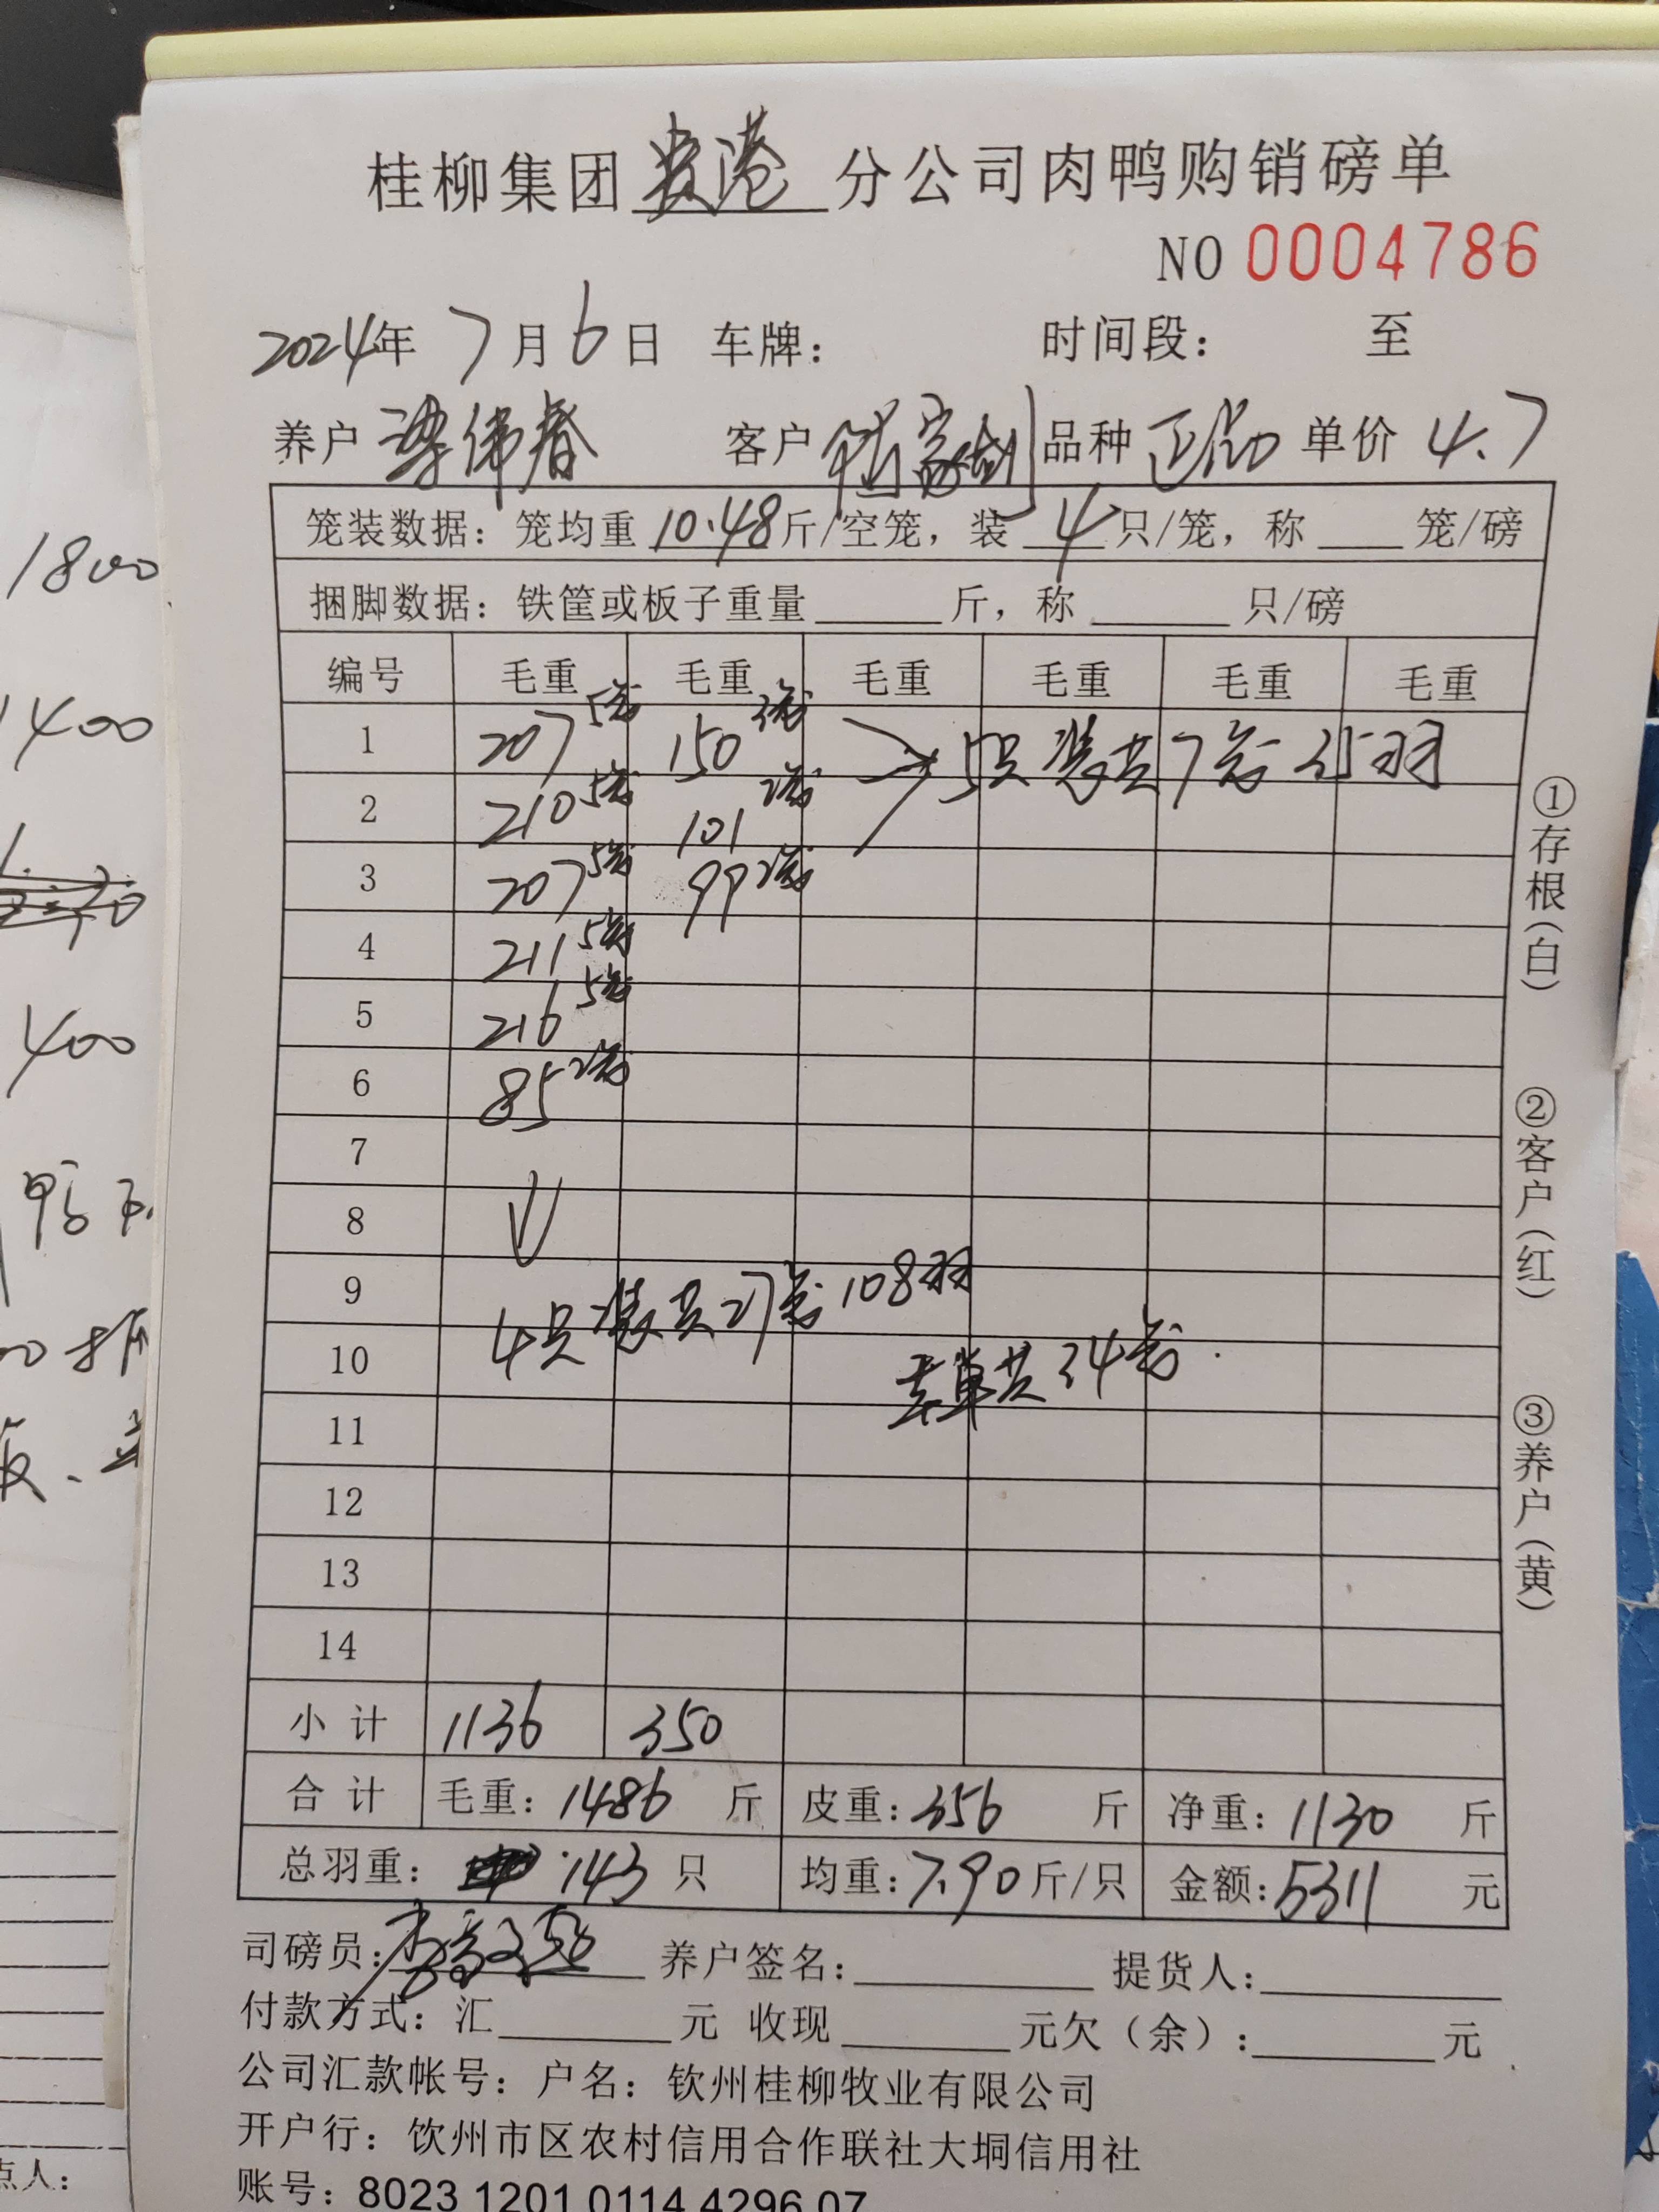 桂柳集团贵港分公司肉鸭购销磅单
NO 0004786
2024年7月6日 车牌： 时间段： 至
养户 梁伟春 客户 品种 正品 单价 4.7
笼装数据：笼均重 10.48 斤/空笼，装 4 只/笼，称 笼/磅
捆脚数据：铁筐或板子重量 斤，称 只/磅
编号 毛重 毛重 毛重 毛重 毛重 毛重
1 207 5笼 150 3笼 5只装共7笼 35羽
2 210 5笼 101 2笼
3 207 5笼 99 2笼
4 211 5笼
5 216 5笼
6 85 2笼
7
8
9 4只装共27笼108羽
10 本单共34笼.
11
12
13
14
小计 1136 350
合计 毛重：1486 斤 皮重：356 斤 净重：1130 斤
总羽重： 143 只 均重：7.90 斤/只 金额：5311 元
司磅员： 养户签名： 提货人：
付款方式：汇 元 收现 元欠（余）： 元
公司汇款帐号：户名：钦州桂柳牧业有限公司
开户行：钦州市区农村信用合作联社大垌信用社
账号：8023 1201 0114 4296 07
①存根（白）
②客户（红）
③养户（黄）
1800
1400
400
点人：